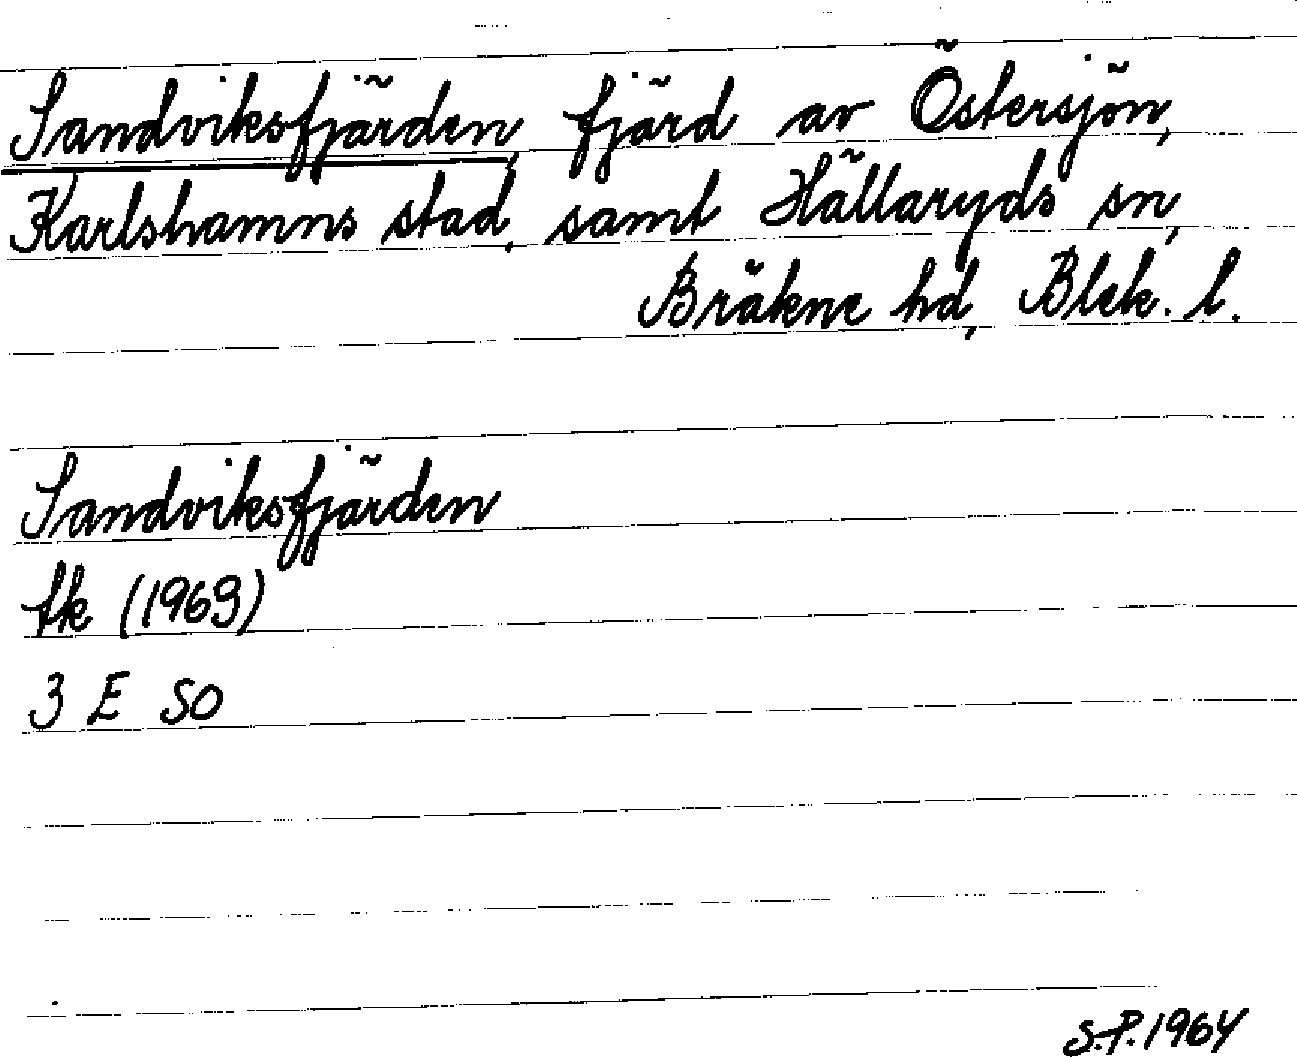 Sandviksfjärden, fjärd av Östersjön,
Karlshamns stad, samt Hällaryds sn,
Bräkne hd, Blek. l.
Sandviksfjärden
tk (1963)
3 E SO
S.P. 1964